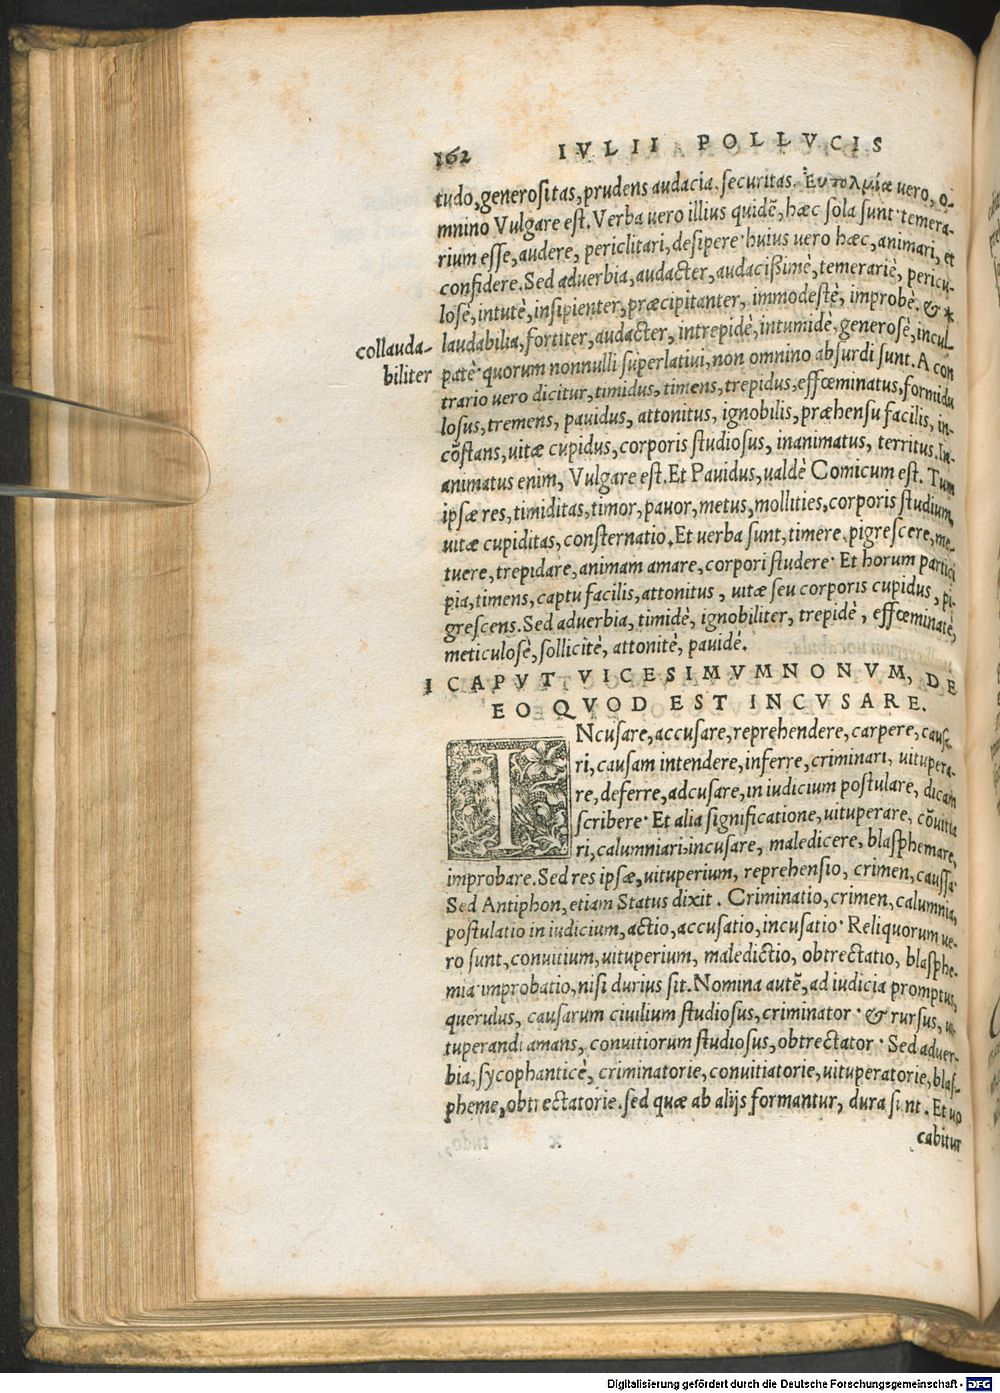 162 IVLII POLLVCIS
tudo, generositas, prudens audacia, securitas. Ἐυτολμίαι uero, o-
mnino Vulgare est. Verba uero illius quidē, hæc sola sunt· temera-
rium esse, audere, periclitari, desipere· huius uero hæc, animari, et
confidere. Sed aduerbia, audacter, audacißimè, temerariè, pericu-
losè, intutè, insipienter, præcipitanter, immodestè, improbè. & *
collauda- laudabilia, fortiter, audacter, intrepidè, intumidè, generosè, incul
biliter patè· quorum nonnulli superlatiui, non omnino absurdi sunt. A con
trario uero dicitur, timidus, timens, trepidus, effœminatus, formidu
losus, tremens, pauidus, attonitus, ignobilis, præhensu facilis, in-
cōstans, uitæ cupidus, corporis studiosus, inanimatus, territus. In-
animatus enim, Vulgare est. Et Pauidus, ualdè Comicum est. Tum
ipsæ res, timiditas, timor, pauor, metus, mollities, corporis studium,
uitæ cupiditas, consternatio. Et uerba sunt, timere, pigrescere, me-
tuere, trepidare, animam amare, corpori studere· Et horum partici
pia, timens, captu facilis, attonitus, uitæ seu corporis cupidus, pi-
grescens. Sed aduerbia, timidè, ignobiliter, trepidè, effœminatè,
meticulosè, sollicitè, attonitè, pauidè.
I CAPVT VICESIMVMNONVM, DE
EO QVOD EST INCVSARE.
INcusare, accusare, reprehendere, carpere, causa-
ri, causam intendere, inferre, criminari, uitupera-
re, deferre, adcusare, in iudicium postulare, dicam
scribere· Et alia significatione, uituperare, cōuitia
ri, calumniari, incusare, maledicere, blasphemare,
improbare. Sed res ipsæ, uituperium, reprehensio, crimen, caussa·
Sed Antiphon, etiam Status dixit. Criminatio, crimen, calumnia,
postulatio in iudicium, actio, accusatio, incusatio· Reliquorum ue-
ro sunt, conuitium, uituperium, maledictio, obtrectatio, blasphe-
mia· improbatio, nisi durius sit. Nomina autē, ad iudicia promptus,
querulus, causarum ciuilium studiosus, criminator· & rursus, ui-
tuperandi amans, conuitiorum studiosus, obtrectator· Sed aduer-
bia, sycophanticè, criminatorie, conuitiatorie, uituperatorie, blas-
pheme, obtrectatorie. sed quæ ab alijs formantur, dura sunt. Et uo
cabitur
Digitalisierung gefördert durch die Deutsche Forschungsgemeinschaft - DFG